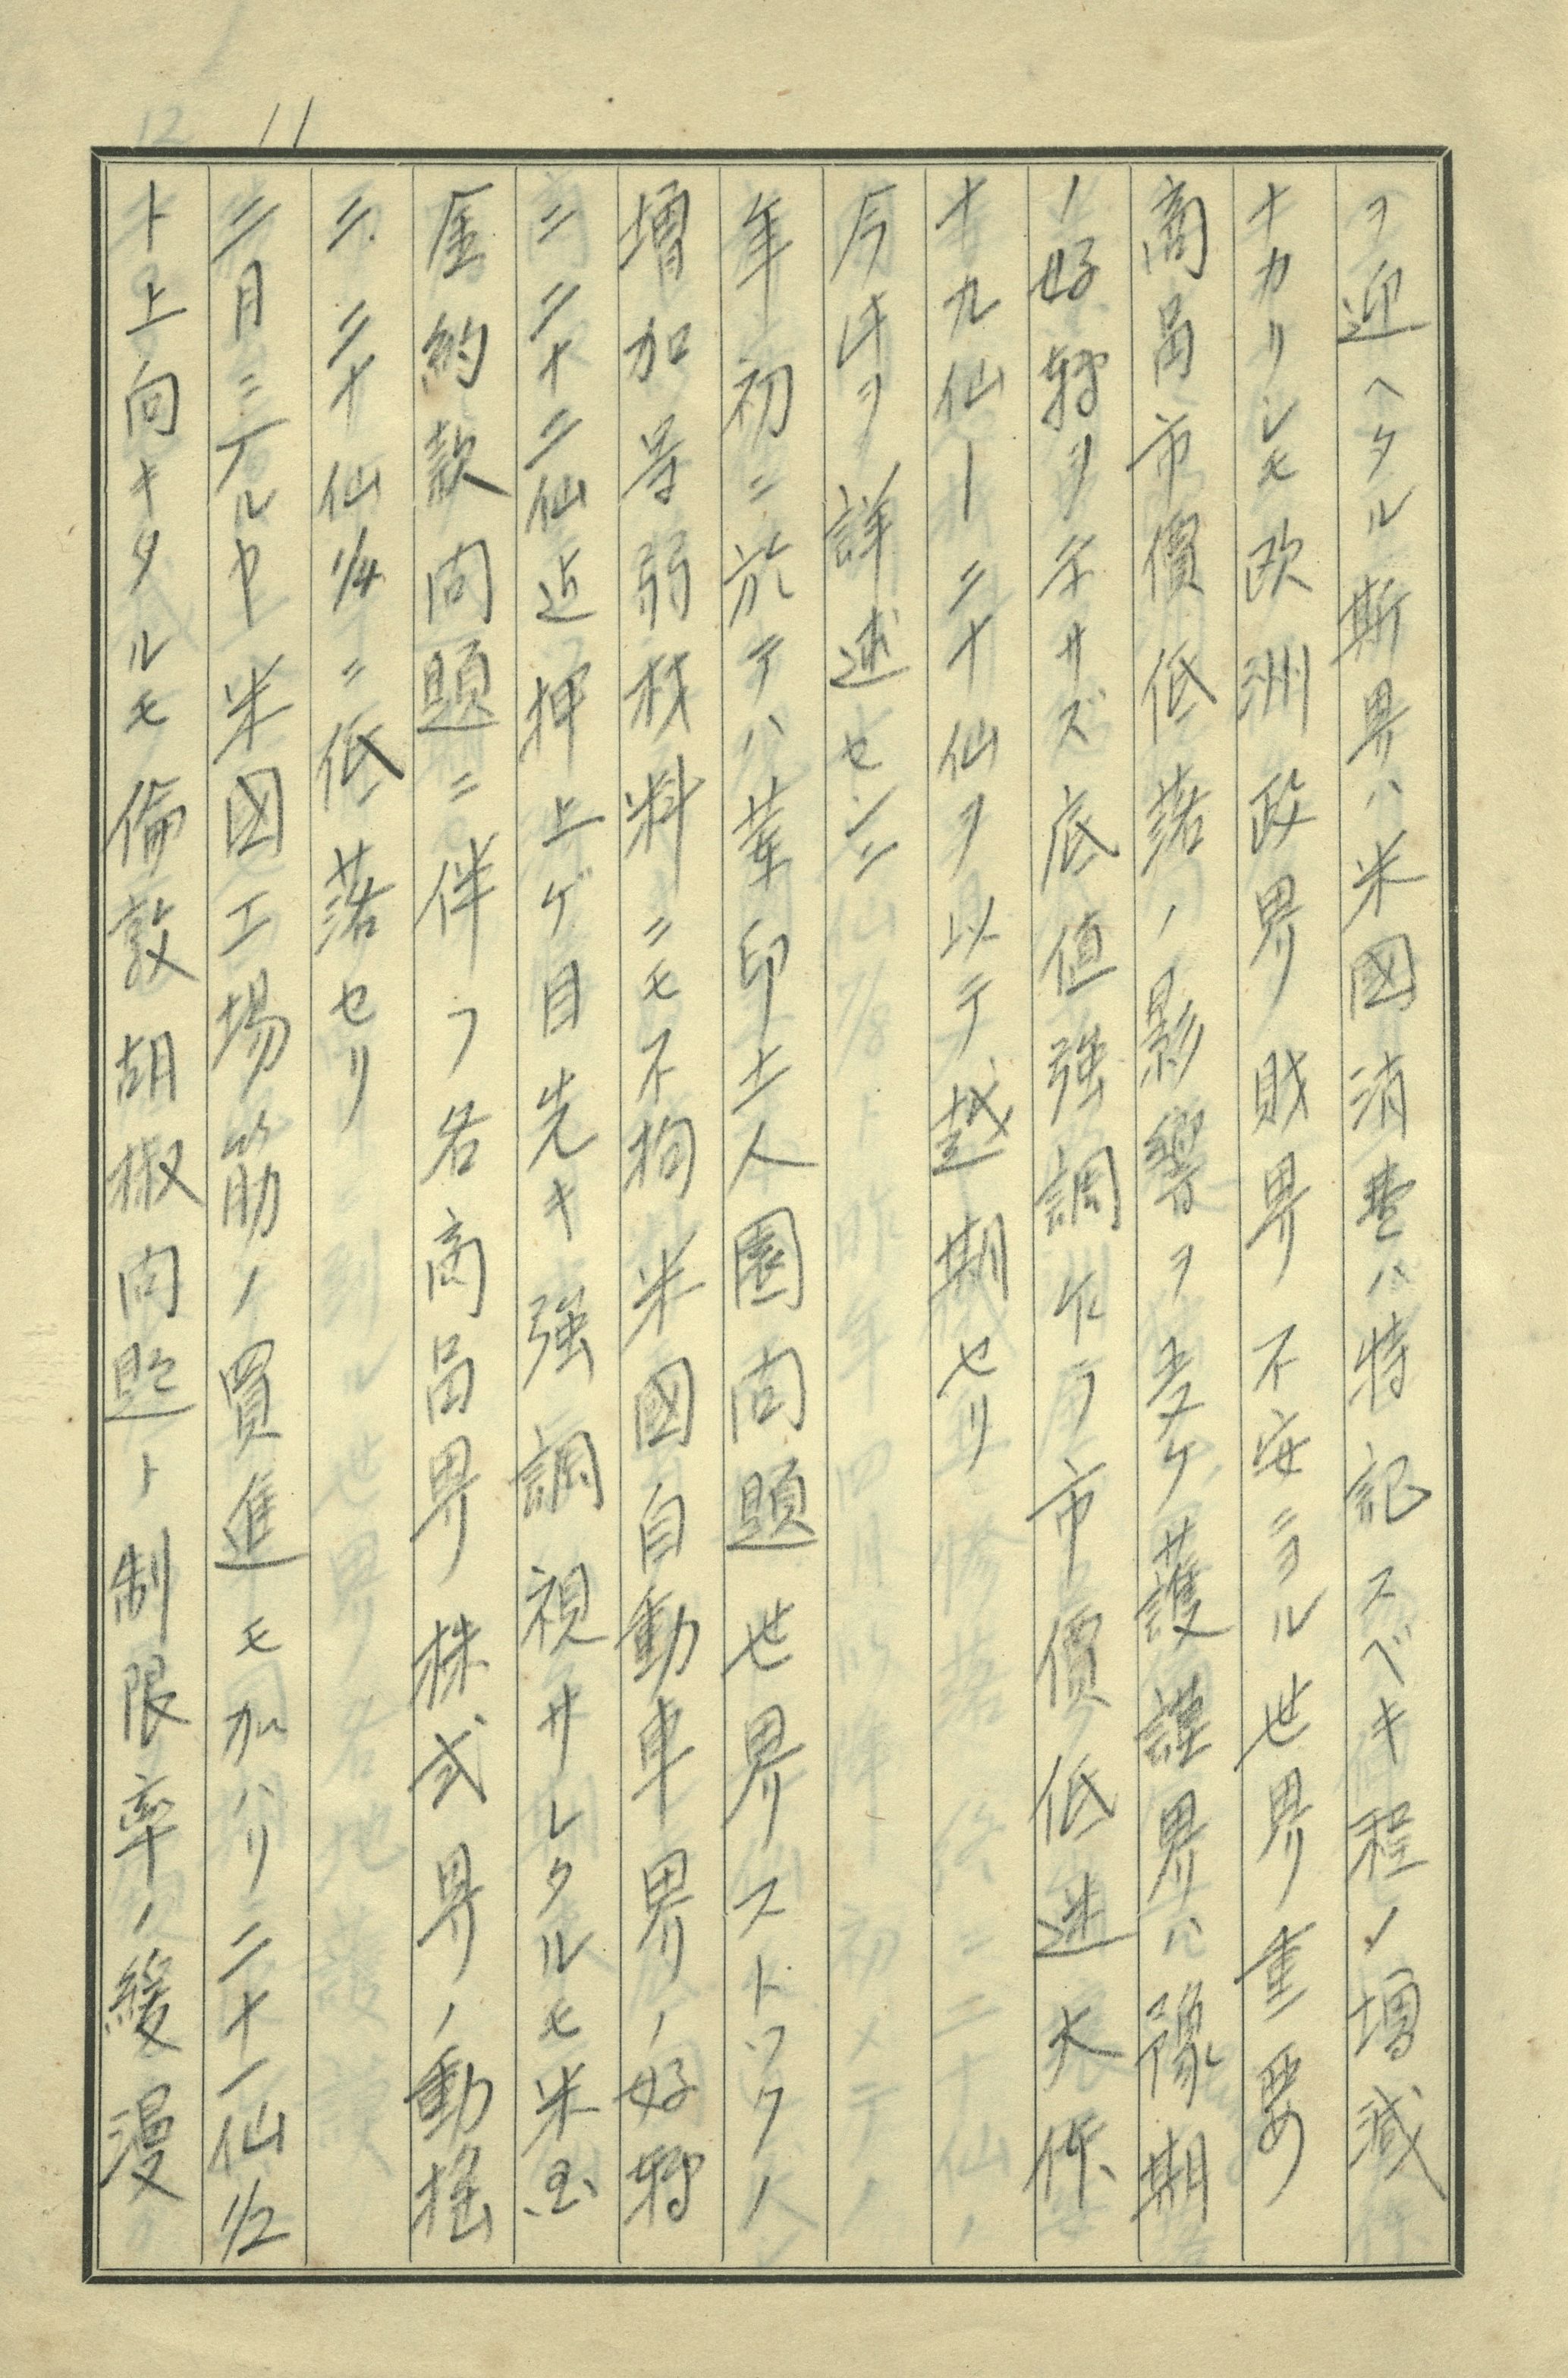 11
ヲ迎ヘタル斯界ハ米國消費ハ特記スベキ程ノ増減
ナカリシモ欧洲政界財界不安ニヨル世界重要
商品市價低落ノ影響ヲ受ケ護謨界ハ豫期
ノ好轉ヲ示サズ底値強調ケラ市價低迷大体
十九仙ー二十仙ヲ以テ越期セリ
今此ヲ詳述センニ
年初ニ於テハ蘭印土人園問題世界ストックノ
増加等弱材料ニモ不拘米國自動車界ノ好轉
ニ二十二仙近押上ゲ目先キ強調視サレタルモ米国
金約款問題ニ伴フ各商品界株式界ノ動揺
ニ二十仙1/4ニ低落セリ
二月ニ至ルヤ米國工場筋ノ買進モ加ハリ二十一仙1/2
ト上向キタルモ倫敦胡椒問題ト制限率ノ緩漫